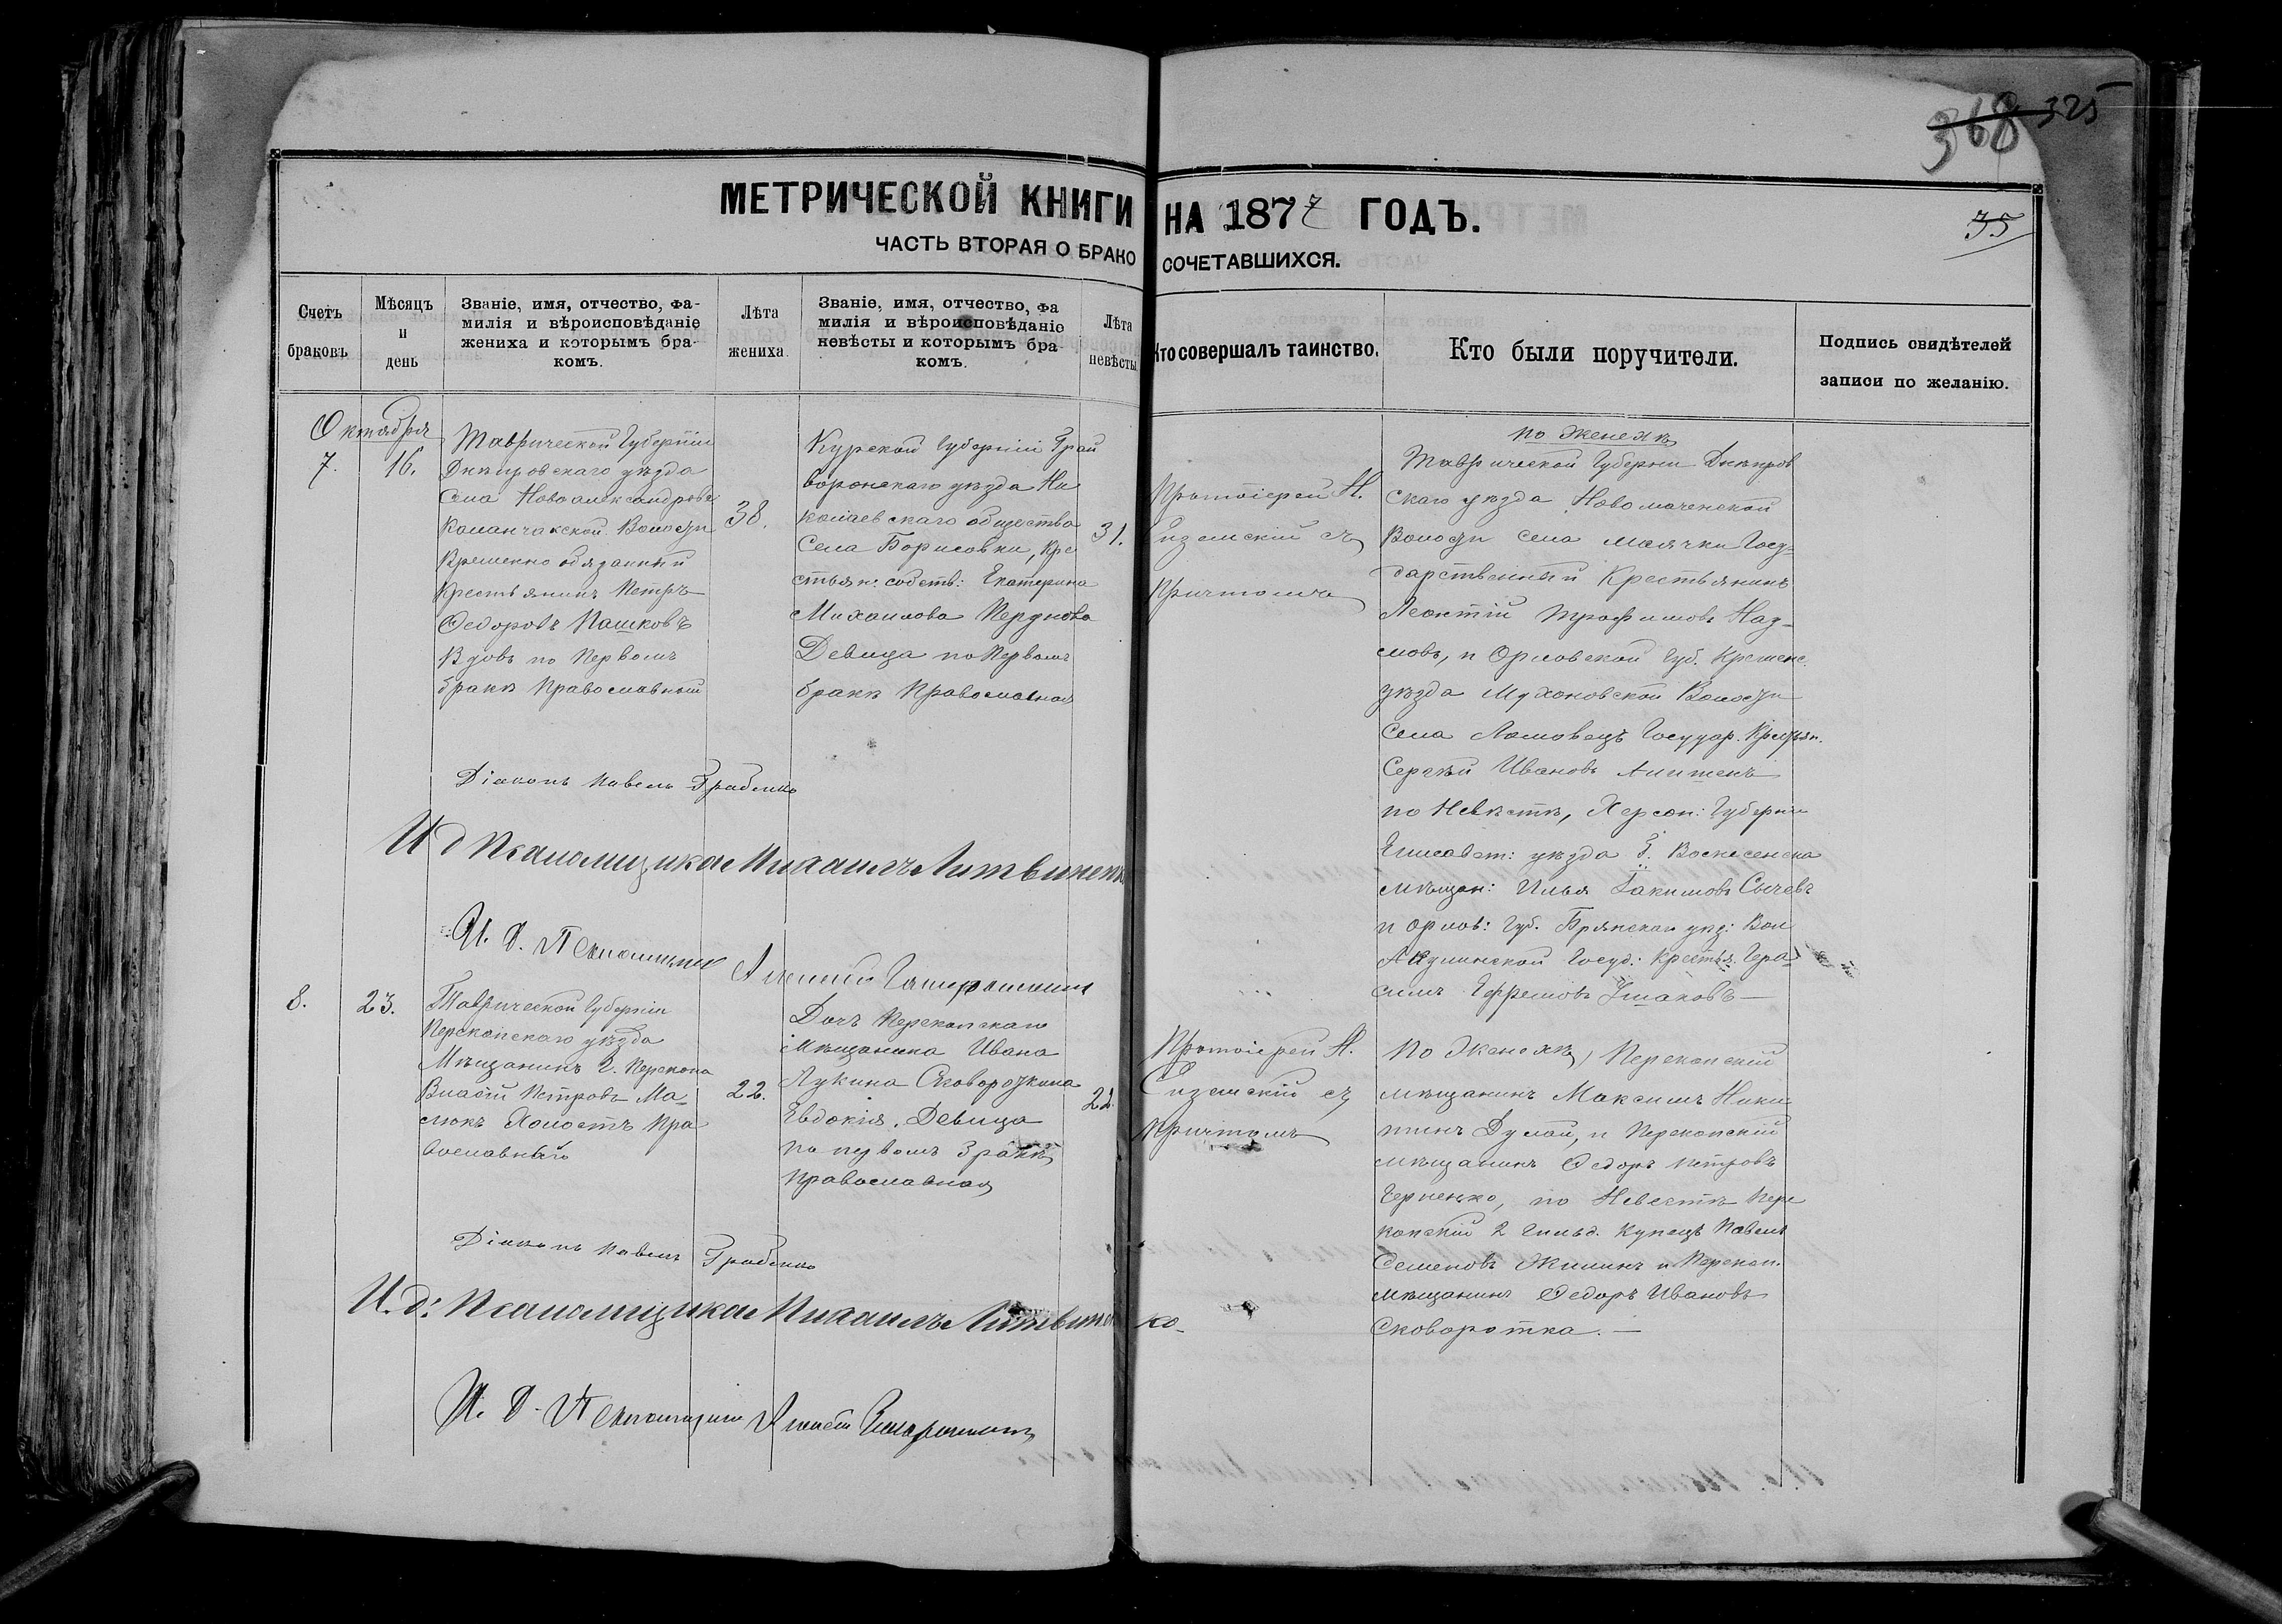 368 325
МЕТРИЧЕСКОЙ КНИГИ НА 1877 ГОДЪ.
35
ЧАСТЬ ВТОРАЯ О БРАКОСОЧЕТАВШИХСЯ.
Счетъ браковъ
Мѣсяцъ и день
Званіе, имя, отчество, фа-
милія и вѣроисповѣданіе
жениха и которымъ бра-
комъ.
Лѣта жениха.
Званіе, имя, отчество, фа
милія и вѣроисповѣданіе
невѣсты и которымъ бра-
комъ.
Лѣта невѣсты
Кто совершалъ таинство.
Кто были поручители.
Подпись свидѣтелей
записи по желанію.
Октября
7. 16.
Таврической Губерніи
Днѣпровскаго уѣзда
Села Новоалександров
Каланчакской Волости
Временно обязанный
Крестьянинъ Петръ
Федоровъ Пашковъ
Вдовъ по Первомъ
бракѣ Православный
38.
Курской Губерніи Грай
воронскаго уѣзда Ни
колаевскаго общества
Села Борисовки, Кре
стьян: собств: Екатерина
Михаилова
Девица по Первомъ
бракѣ Православная
31.
Протоіерей Н.
съ
Причтомъ
По Женихѣ
Таврической Губерніи Днѣпров
скаго уѣзда
Волости Села Маячки Госу-
дарственный Крестьянинъ
Леонтій Трофимовъ Наз-
мовъ, и Орловской Губ.
уѣзда Волости
Села Ломовецъ Государ. Крестьян.
Сергѣй Ивановъ
по Невѣстѣ, Херсон: Губерніи
Елисавет: уѣзда Г. Воскресенска
мѣщан: Илья Іакимовъ Сычевъ
и Орлов: Губ. Брянскаго уѣз: Вол
Госуд: Крестья. Гера
симъ Ефремовъ Ушаковъ—
Діаконъ Павелъ Грабенко
И д Псаломщика Михаилъ Литвиненк
И. Д. Псаломщика Алексій
8. 23.
Таврической Губерніи
Перекопскаго уѣзда
Мѣщанинъ г. Перекопа
Власій Петровъ Ма-
слюкъ Холостъ Пра
вославнаго
22.
Дочь Перекопскаго
Мѣщанина Ивана
Лукина Сковородкина
Евдокія, Девица
по первомъ бракѣ
Православная
22.
Протоіерей Н.
съ
Причтомъ
По Женихѣ, Перекопскій
мѣщанинъ Максимъ Ники
тинъ, и Перекопскій
мѣщанинъ Федоръ Петровъ
Черненко, по Невестѣ Пере
копскій 2 гильд. Купецъ Павелъ
Семеновъ Жилинъ и Перекоп.
мѣщанинъ Федоръ Ивановъ
Сковоротка.—
Діаконъ Павелъ Грабенко
И. д: Псаломщика Михаилъ Литвиненко
И. Д. Псаломщика Алексій